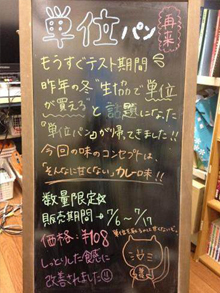 単位パン
再来
もうすぐテスト期間
昨年の冬"生協で単位
が買える"と話題になった
『単位パン』が帰ってきました!!
今回の味のコンセプトは、
「そんなに甘くない」カレー味!!
数量限定☆
販売期間→7/6〜7/17
価格:¥108
しっとりした食感に
改善されました!!
単位を取るのも甘くないぞ。